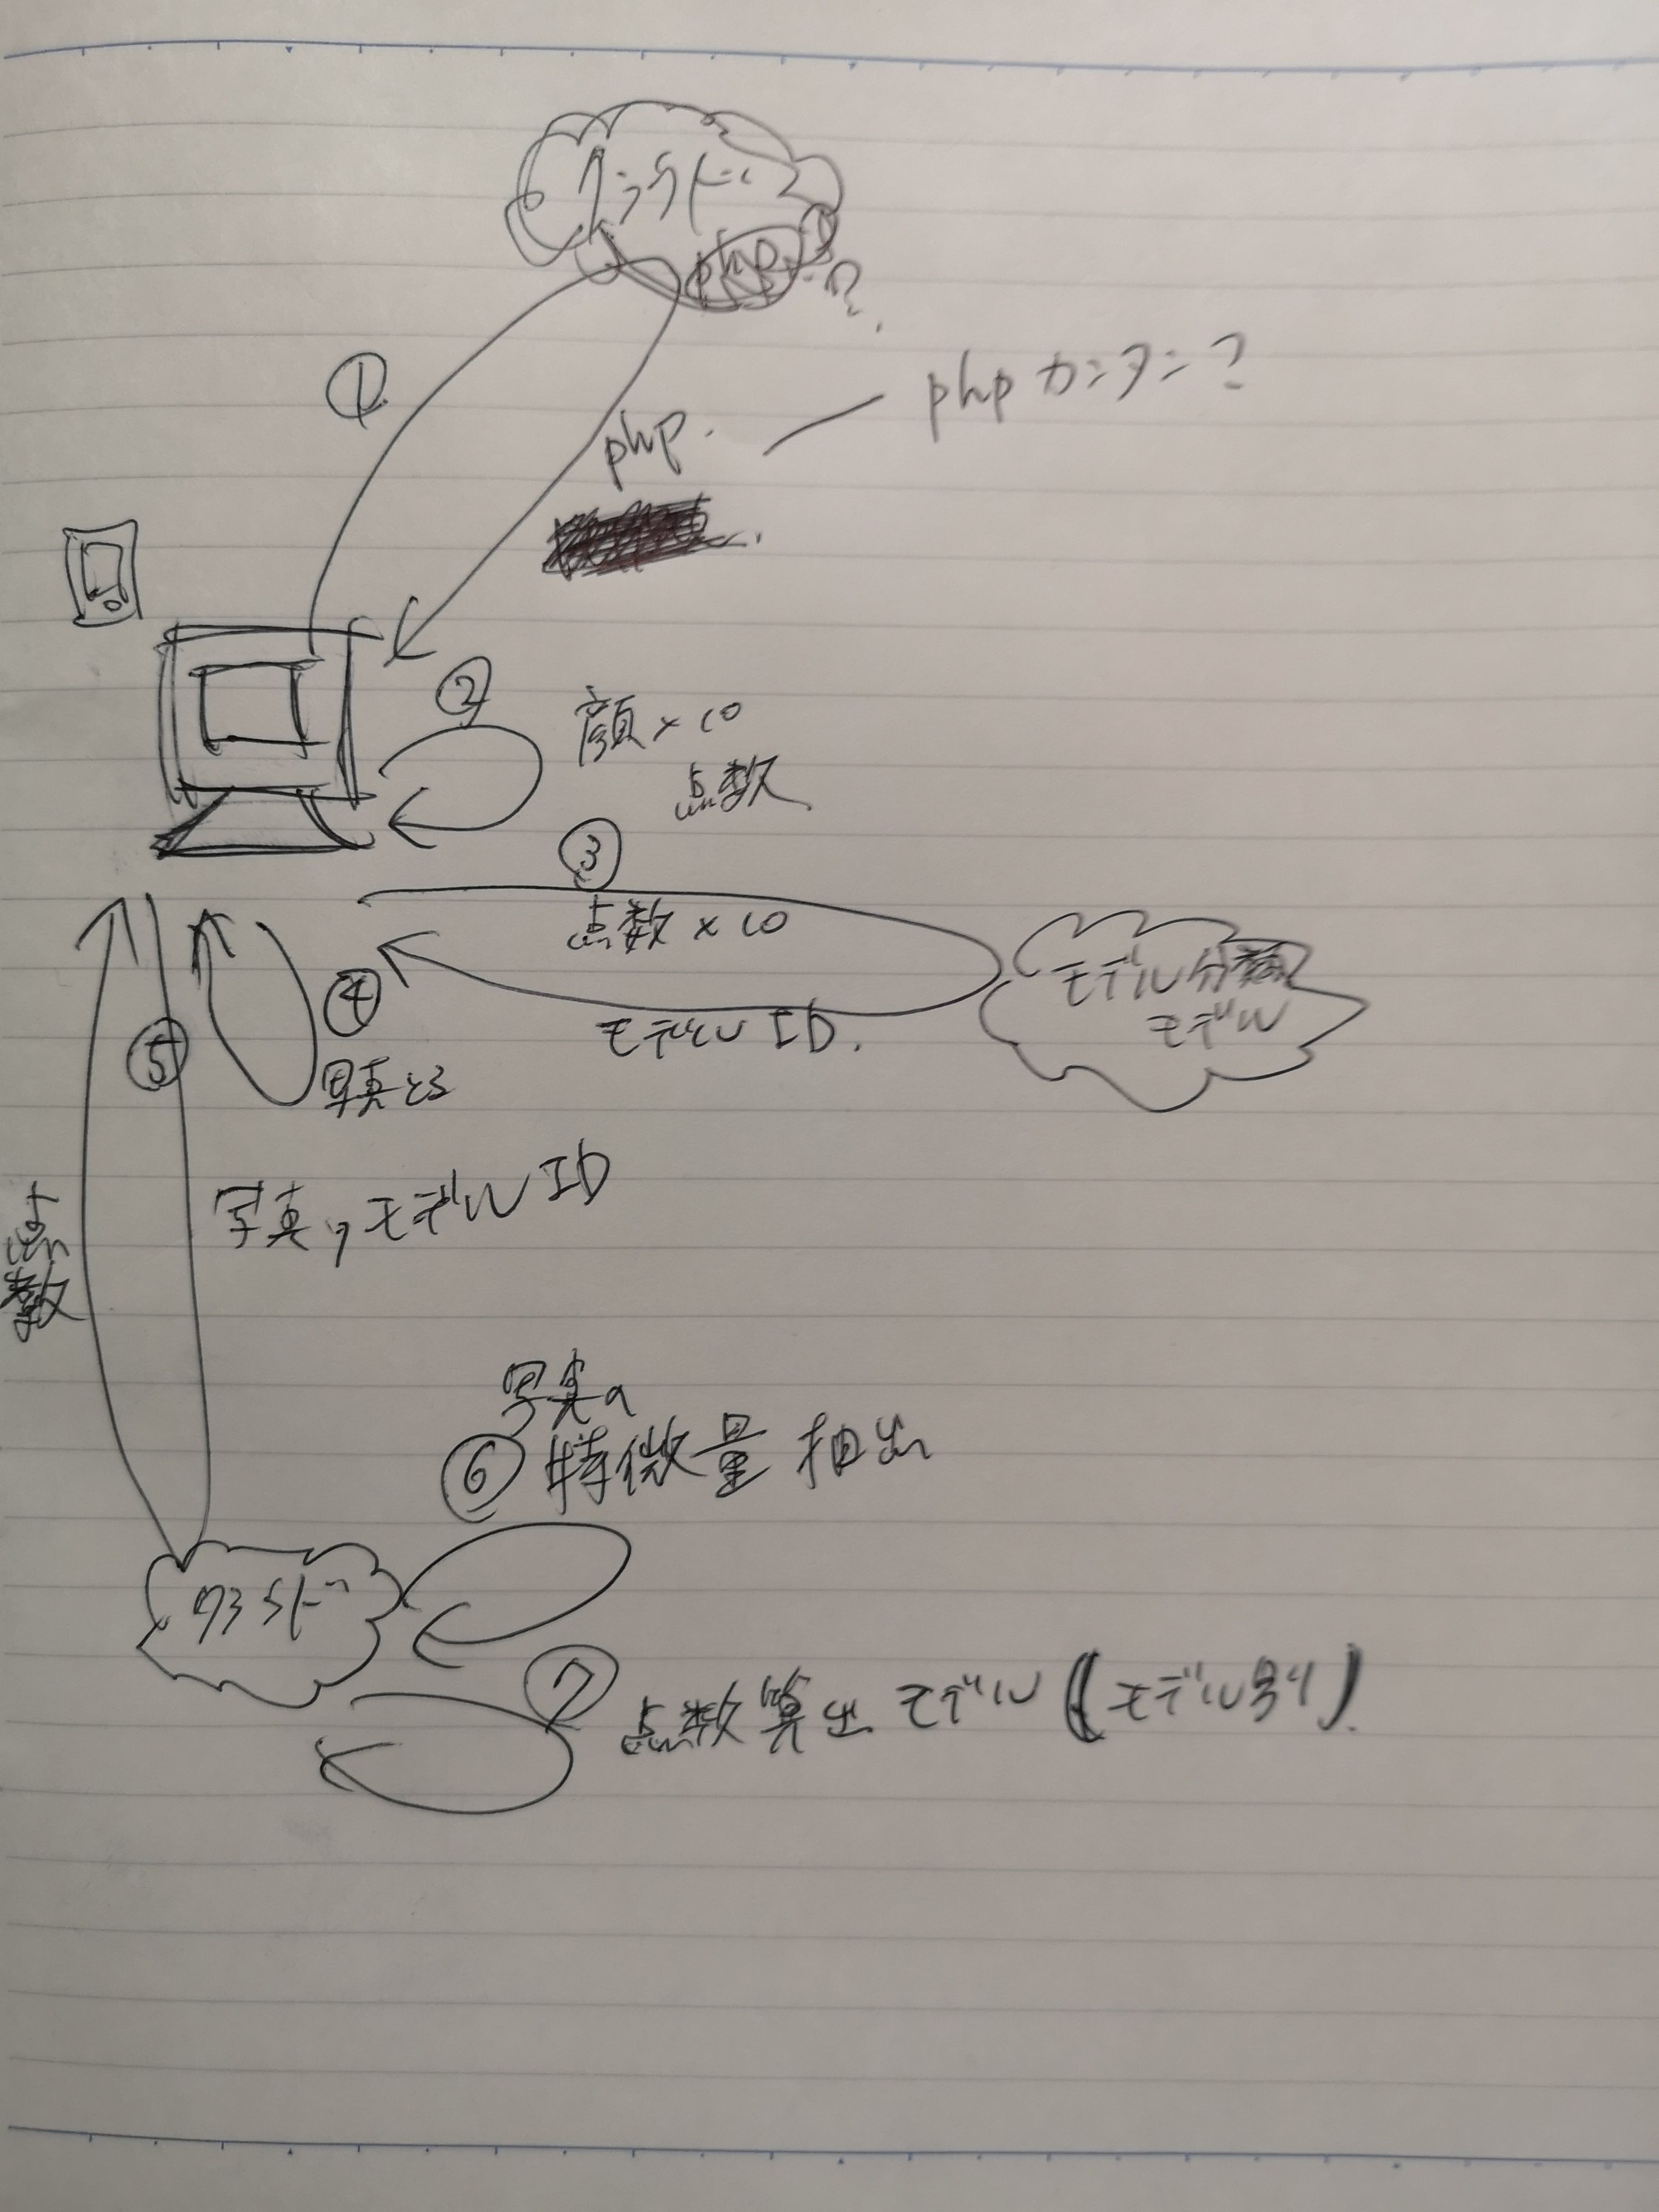 クラウド
php
?
①
php.
phpカンタン?
②
顔×10
点数
③
点数×10
モデルID.
モデル分類
モデル
④
写真とる
⑤
写真, モデルID
点数
写真の
⑥ 特徴量抽出
クラウド
⑦
点数算出モデル(モデル別).